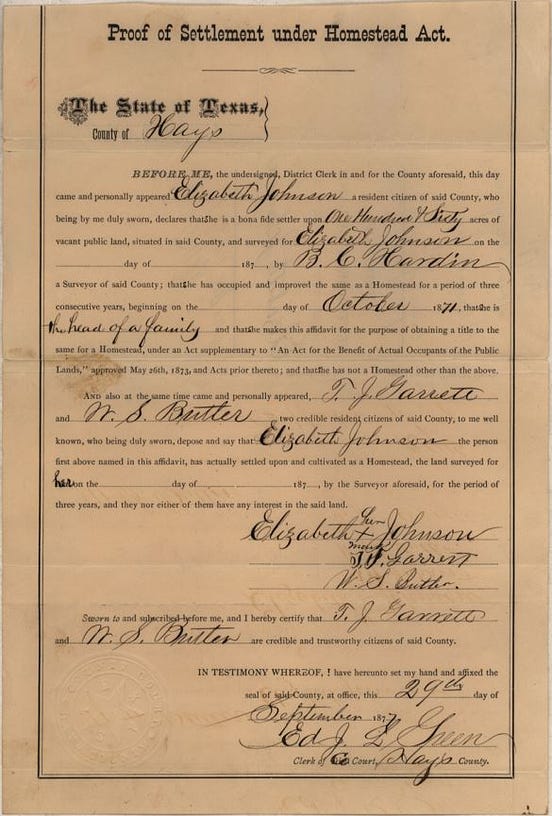 Proof of Settlement under Homestead Act.
The State of Texas,
County of Hays
BEFORE ME, the undersigned, District Clerk in and for the County aforesaid, this day
came and personally appeared Elizabeth Johnson a resident citizen of said County, who
being by me duly sworn, declares that she is a bona fide settler upon One Hundred & Sixty acres of
vacant public land, situated in said County, and surveyed for Elizabeth Johnson on the
day of 187 , by B. C. Hardin
a Surveyor of said County; that she has occupied and improved the same as a Homestead for a period of three
consecutive years, beginning on the day of October 1871, that she is
the head of a family and that she makes this affidavit for the purpose of obtaining a title to the
same for a Homestead, under an Act supplementary to "An Act for the Benefit of Actual Occupants of the Public
Lands," approved May 26th, 1873, and Acts prior thereto; and that she has not a Homestead other than the above.
And also at the same time came and personally appeared, T. J. Garrett
and W. S. Butler two credible resident citizens of said County, to me well
known, who being duly sworn, depose and say that Elizabeth Johnson the person
first above named in this affidavit, has actually settled upon and cultivated as a Homestead, the land surveyed for
her on the day of 187 , by the Surveyor aforesaid, for the period of
three years, and they nor either of them have any interest in the said land.
Elizabeth her x mark Johnson
T. J. Garrett
W. S. Butler.
Sworn to and subscribed before me, and I hereby certify that T. J. Garrett
and W. S. Butler are credible and trustworthy citizens of said County.
IN TESTIMONY WHEREOF, I have hereunto set my hand and affixed the
seal of said County, at office, this 29th day of
September 1877
Ed J. L. Green
Clerk of Co Court, Hays County.